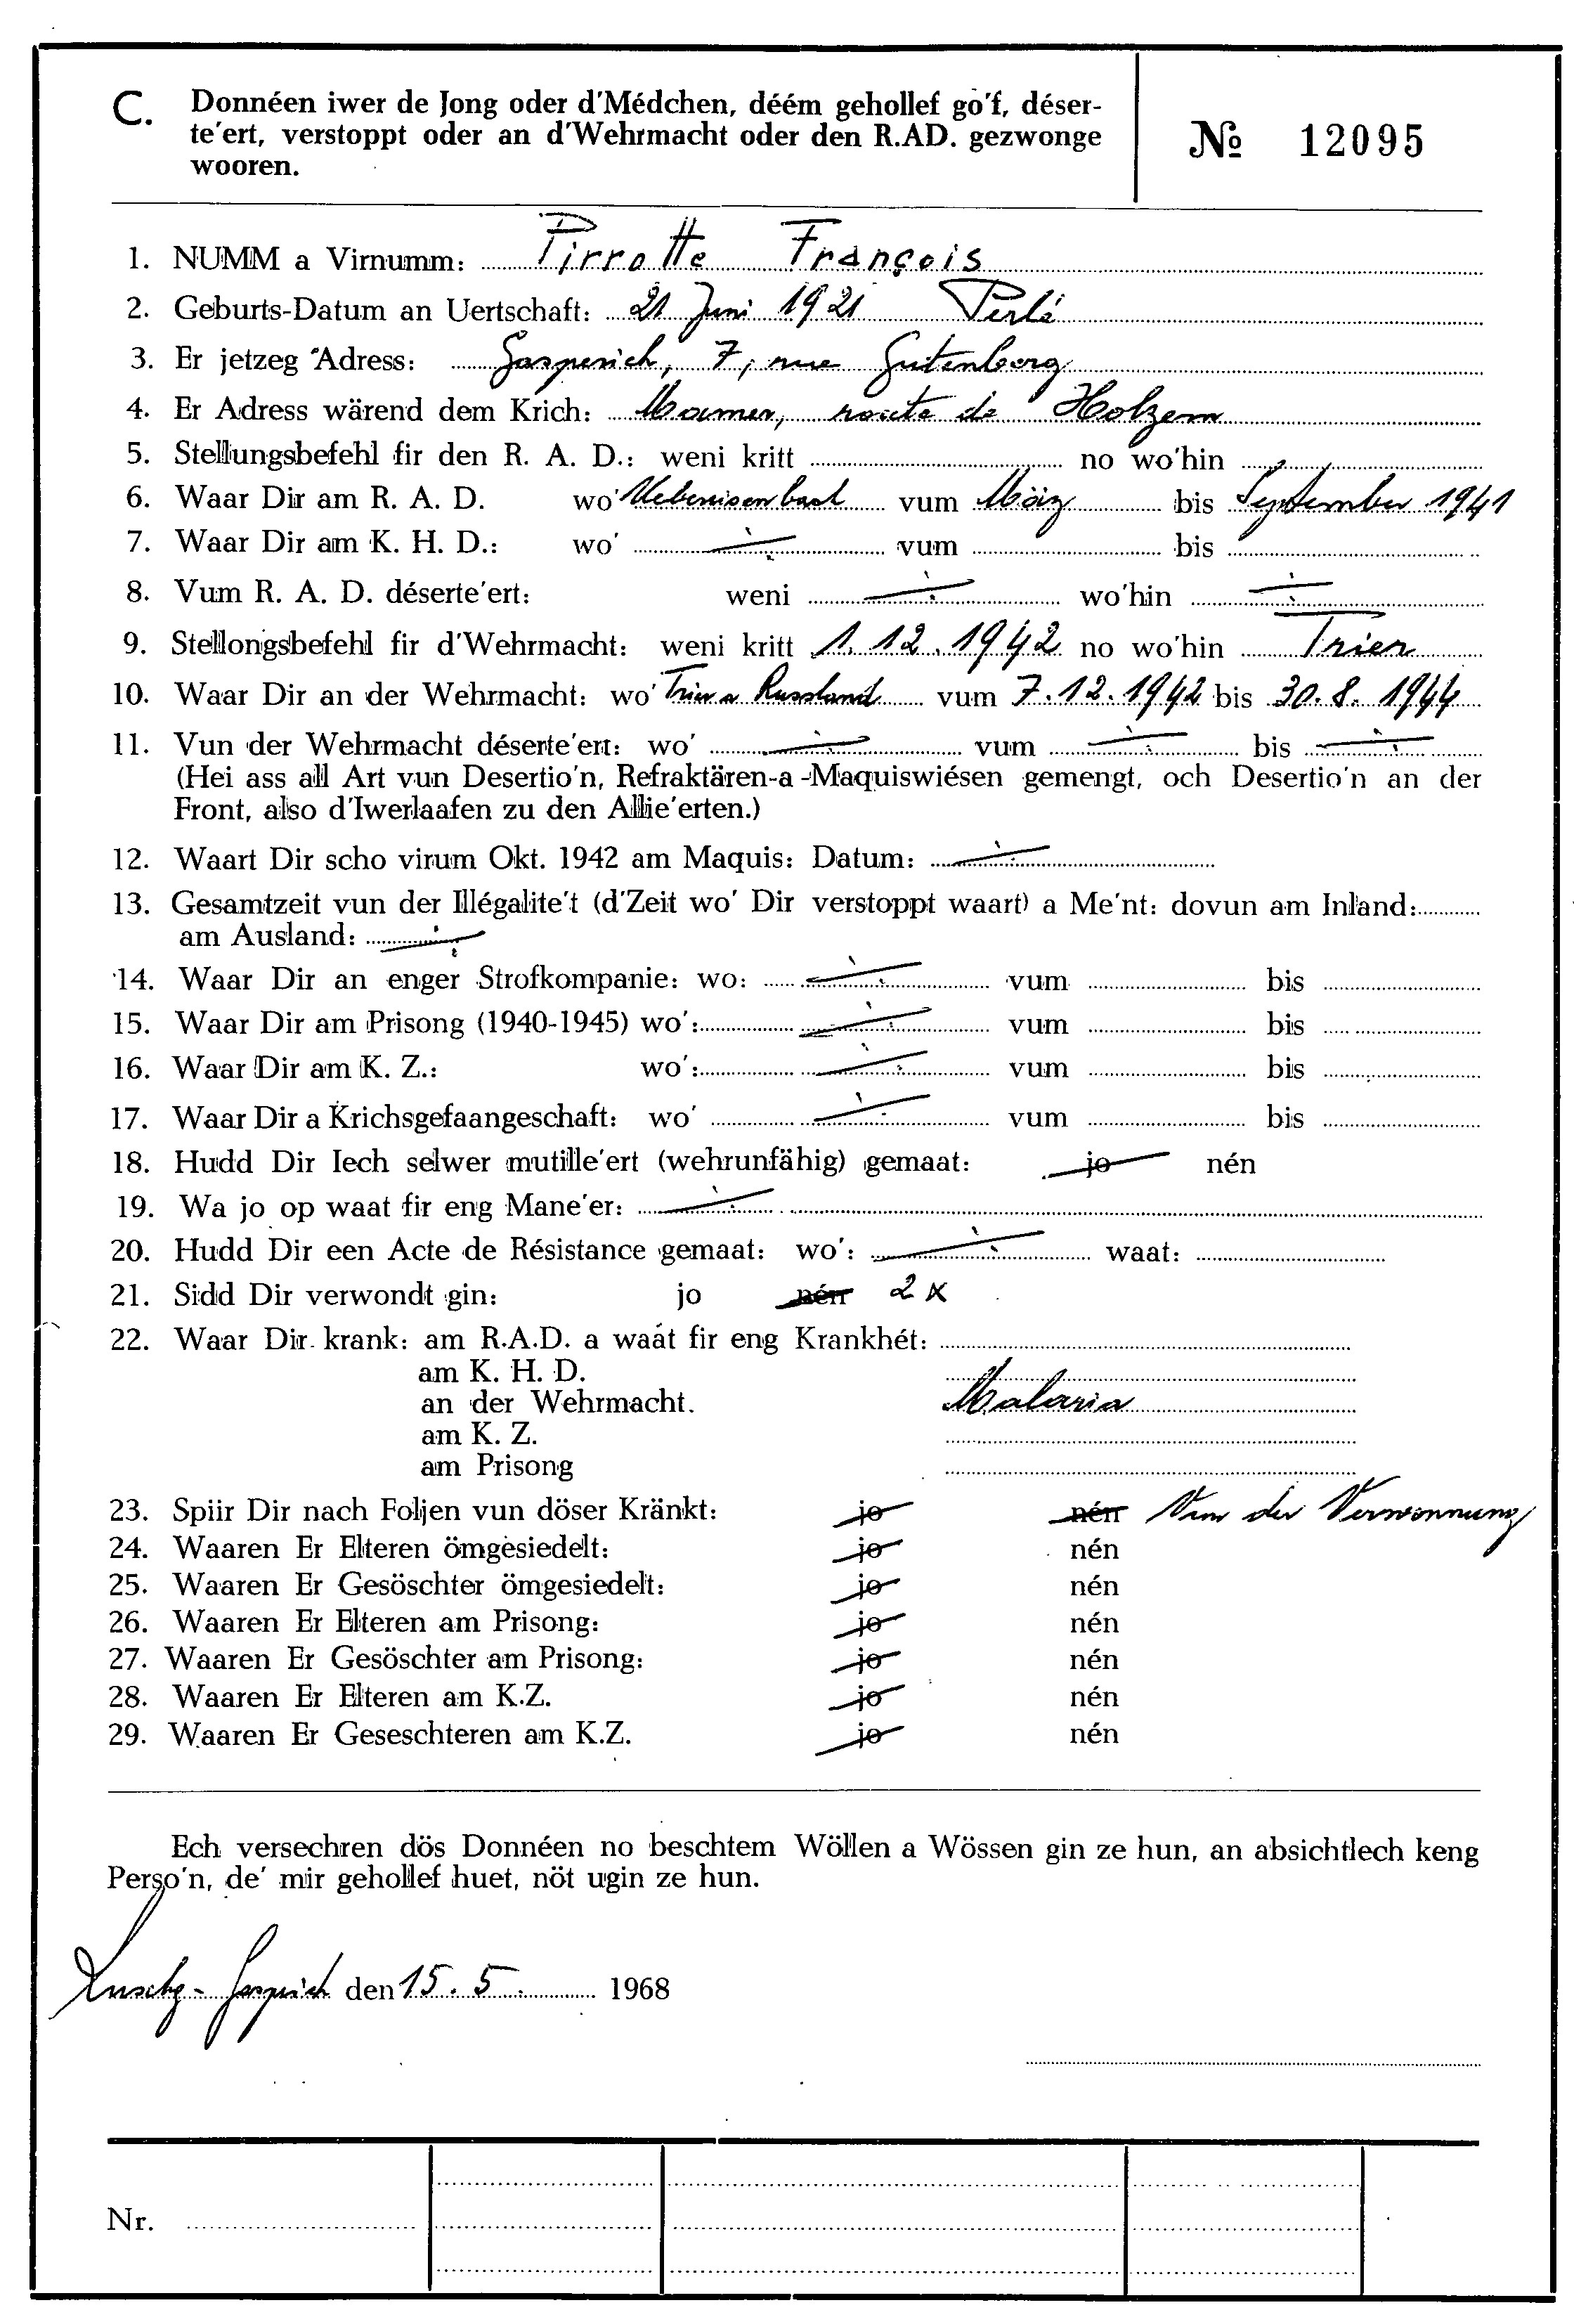 C. Donnéen iwer de Jong oder d'Médchen, déém gehollef go'f, déser-
te'ert, verstoppt oder an d'Wehrmacht oder den R.AD. gezwonge
wooren.
№ 12095
1. NUMM a Virnumm: Pirrotte François
2. Geburts-Datum an Uertschaft: 21 Juni 1921 Perlé
3. Er jetzeg Adress: Gasperich, 7, rue Gutenberg
4. Er Adress wärend dem Krich: Mamer, route de Holzem
5. Stellungsbefehl fir den R. A. D.: weni kritt no wo'hin
6. Waar Dir am R. A. D. wo' vum März bis September 1941
7. Waar Dir am K. H. D.: wo' ÷ vum bis
8. Vum R. A. D. déserte'ert: weni ÷ wo'hin ÷
9. Stellongsbefehl fir d'Wehrmacht: weni kritt 1.12.1942 no wo'hin Trier
10. Waar Dir an der Wehrmacht: wo' Trier a Russland vum 7.12.1942 bis 30.8.1944
11. Vun der Wehrmacht déserte'ert: wo' ÷ vum ÷ bis ÷
(Hei ass all Art vun Desertio'n, Refraktären-a-Maquiswiésen gemengt, och Desertio'n an der
Front, also d'Iwerlaafen zu den Allie'erten.)
12. Waart Dir scho virum Okt. 1942 am Maquis: Datum: ÷
13. Gesamtzeit vun der Illégalite't (d'Zeit wo' Dir verstoppt waart) a Me'nt: dovun am Inland:
am Ausland: ÷
14. Waar Dir an enger Strofkompanie: wo: ÷ vum bis
15. Waar Dir am Prisong (1940-1945) wo': ÷ vum bis
16. Waar Dir am K. Z.: wo': ÷ vum bis
17. Waar Dir a Krichsgefaangeschaft: wo' ÷ vum bis
18. Hudd Dir Iech selwer mutille'ert (wehrunfähig) gemaat: jo nén
19. Wa jo op waat fir eng Mane'er: ÷
20. Hudd Dir een Acte de Résistance gemaat: wo': ÷ waat:
21. Sidd Dir verwondt gin: jo nén 2 x
22. Waar Dir krank: am R.A.D. a waat fir eng Krankhét:
am K. H. D.
an der Wehrmacht. Malaria
am K. Z.
am Prisong
23. Spiir Dir nach Foljen vun döser Kränkt: jo nén Vun der Verwonnung
24. Waaren Er Elteren ömgesiedelt: jo nén
25. Waaren Er Gesöschter ömgesiedelt: jo nén
26. Waaren Er Elteren am Prisong: jo nén
27. Waaren Er Gesöschter am Prisong: jo nén
28. Waaren Er Elteren am K.Z. jo nén
29. Waaren Er Geseschteren am K.Z. jo nén
Ech versechren dös Donnéen no beschtem Wöllen a Wössen gin ze hun, an absichtlech keng
Perso'n, de' mir gehollef huet, nöt ugin ze hun.
Gasperich den 15.5. 1968
Nr.